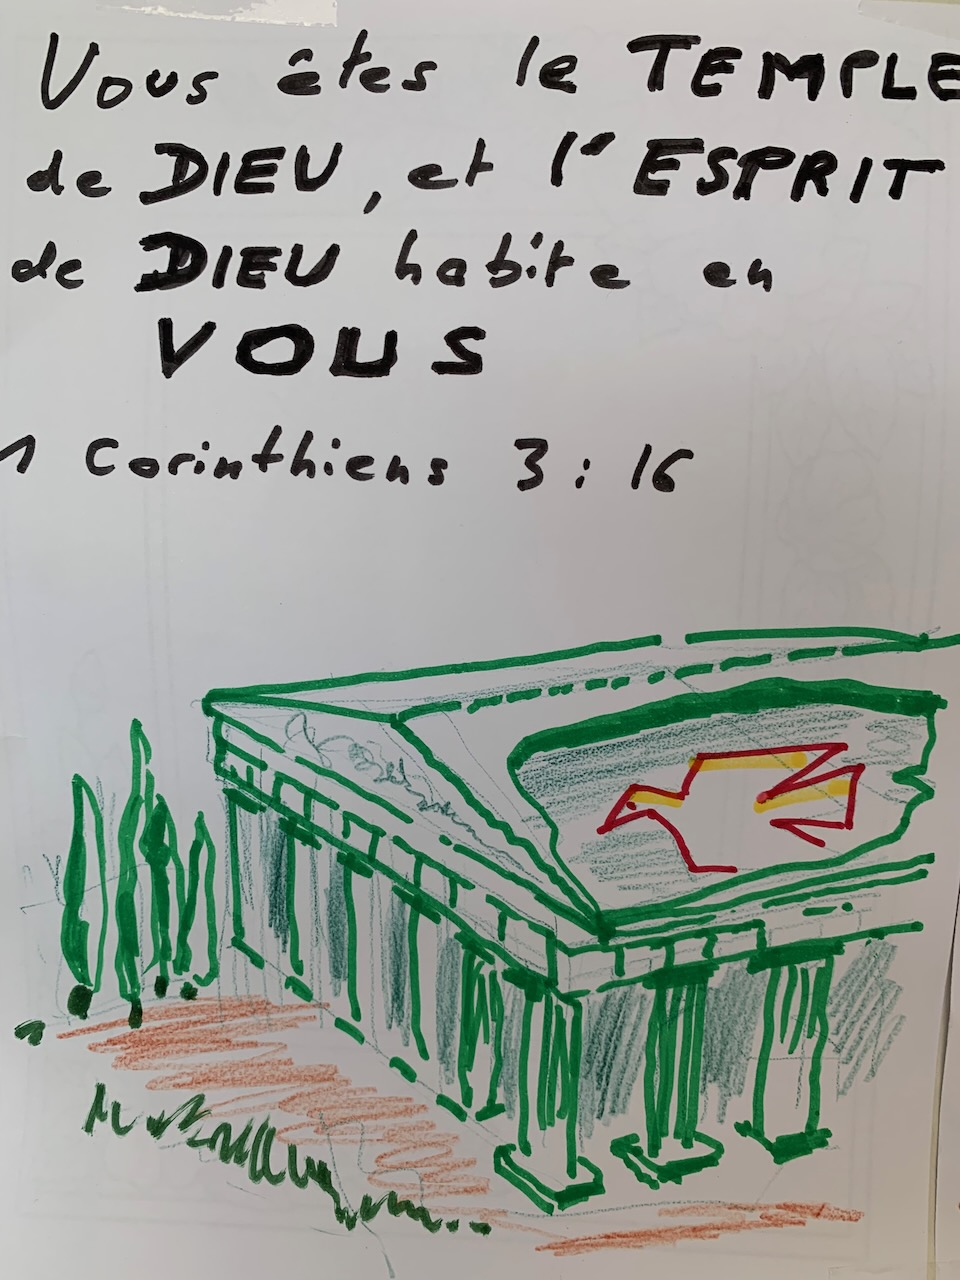 Vous êtes le TEMPLE
de DIEU, et l'ESPRIT
de DIEU habite en
VOUS
1 Corinthiens 3:16